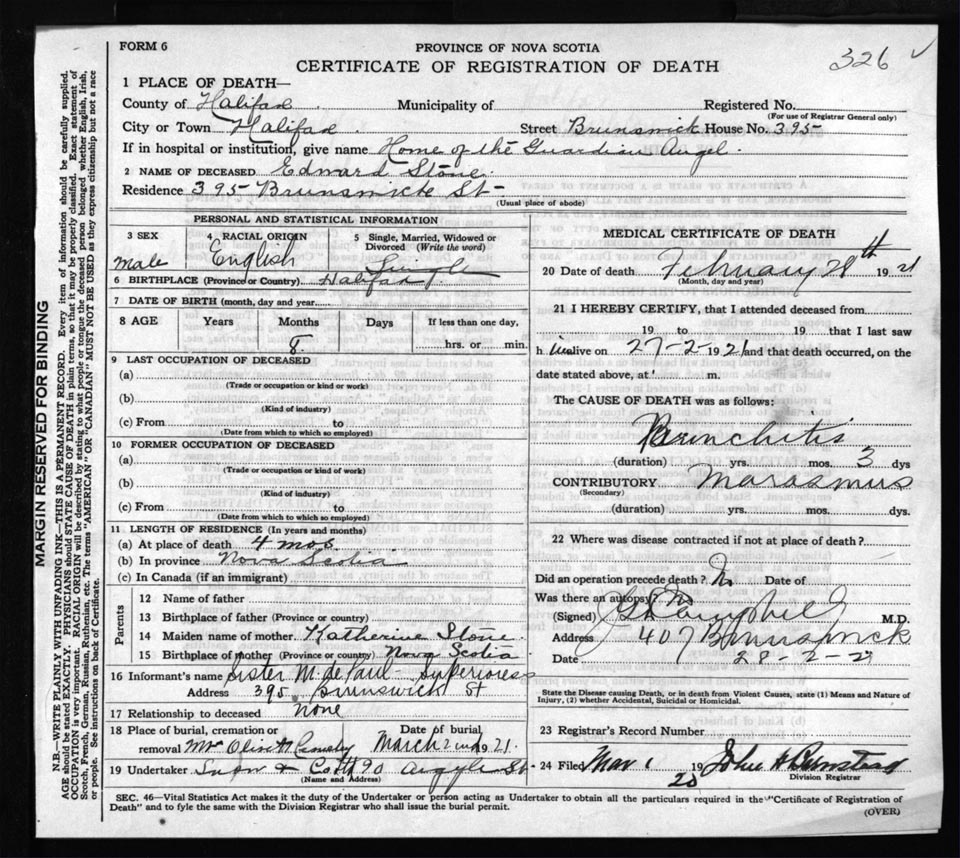 FORM 6
PROVINCE OF NOVA SCOTIA
326 ✓
CERTIFICATE OF REGISTRATION OF DEATH
1 PLACE OF DEATH—
County of Halifax Municipality of Registered No.
(For use of Registrar General only)
City or Town Halifax Street Brunswick House No. 395
If in hospital or institution, give name Home of the Guardian Angel.
2 NAME OF DECEASED Edward Stone.
Residence 395 Brunswick St-
(Usual place of abode)
PERSONAL AND STATISTICAL INFORMATION
3 SEX 4 RACIAL ORIGIN 5 Single, Married, Widowed or Divorced (Write the word)
male English Single
6 BIRTHPLACE (Province or Country) Halifax
7 DATE OF BIRTH (month, day and year)
8 AGE Years Months Days If less than one day,
8. hrs. or min.
9 LAST OCCUPATION OF DECEASED
(a)
(Trade or occupation or kind or work)
(b)
(Kind of industry)
(c) From to
(Date from which to which so employed)
10 FORMER OCCUPATION OF DECEASED
(a)
(Trade or occupation or kind of work)
(b)
(Kind of industry)
(c) From to
(Date from which to which so employed)
11 LENGTH OF RESIDENCE (In years and months)
(a) At place of death 4 mos.
(b) In province Nova Scotia
(c) In Canada (if an immigrant)
Parents
12 Name of father
13 Birthplace of father (Province or country)
14 Maiden name of mother Katherine Stone.
15 Birthplace of mother (Province or country) Nova Scotia
16 Informant's name Sister M. de Paul- Superioress
Address 395 Brunswick St
17 Relationship to deceased none
18 Place of burial, cremation or removal Date of burial,
Mt Olivet March 2nd 1921.
19 Undertaker Snow & Co 90 Argyle St-
(Name and Address)
MEDICAL CERTIFICATE OF DEATH
20 Date of death February 28th 1921
(Month, day and year)
21 I HEREBY CERTIFY, that I attended deceased from
19 to 19 that I last saw
h im alive on 27-2- 1921 and that death occurred, on the
date stated above, at m.
The CAUSE OF DEATH was as follows:
Bronchitis
(duration) yrs. mos. 3 dys
CONTRIBUTORY Marasmus
(Secondary)
(duration) yrs. mos. dys.
22 Where was disease contracted if not at place of death?
Did an operation precede death? No Date of
Was there an autopsy? No
(Signed) Campbell M.D.
Address 407 Brunswick
Date 28-2-21
State the Disease causing Death, or in death from Violent Causes, state (1) Means and Nature of
Injury, (2) whether Accidental, Suicidal or Homicidal.
23 Registrar's Record Number
24 Filed Mar 1 19 John A
20 Division Registrar
SEC. 46—Vital Statistics Act makes it the duty of the Undertaker or person acting as Undertaker to obtain all the particulars required in the "Certificate of Registration of
Death" and to fyle the same with the Division Registrar who shall issue the burial permit.
(OVER)
MARGIN RESERVED FOR BINDING
N.B.—WRITE PLAINLY WITH UNFADING INK—THIS IS A PERMANENT RECORD. Every item of information should be carefully supplied.
AGE should be stated EXACTLY. PHYSICIANS should STATE CAUSE OF DEATH in plain terms, so that it may be properly classified. Exact statement of
OCCUPATION is very important. RACIAL ORIGIN will be described by stating to what people or tongue the deceased person belonged whether English, Irish,
Scotch, French, German, Russian, Ruthenian, etc. The terms "AMERICAN" OR "CANADIAN" MUST NOT BE USED as they express citizenship but not a race
or people. See instructions on back of Certificate.